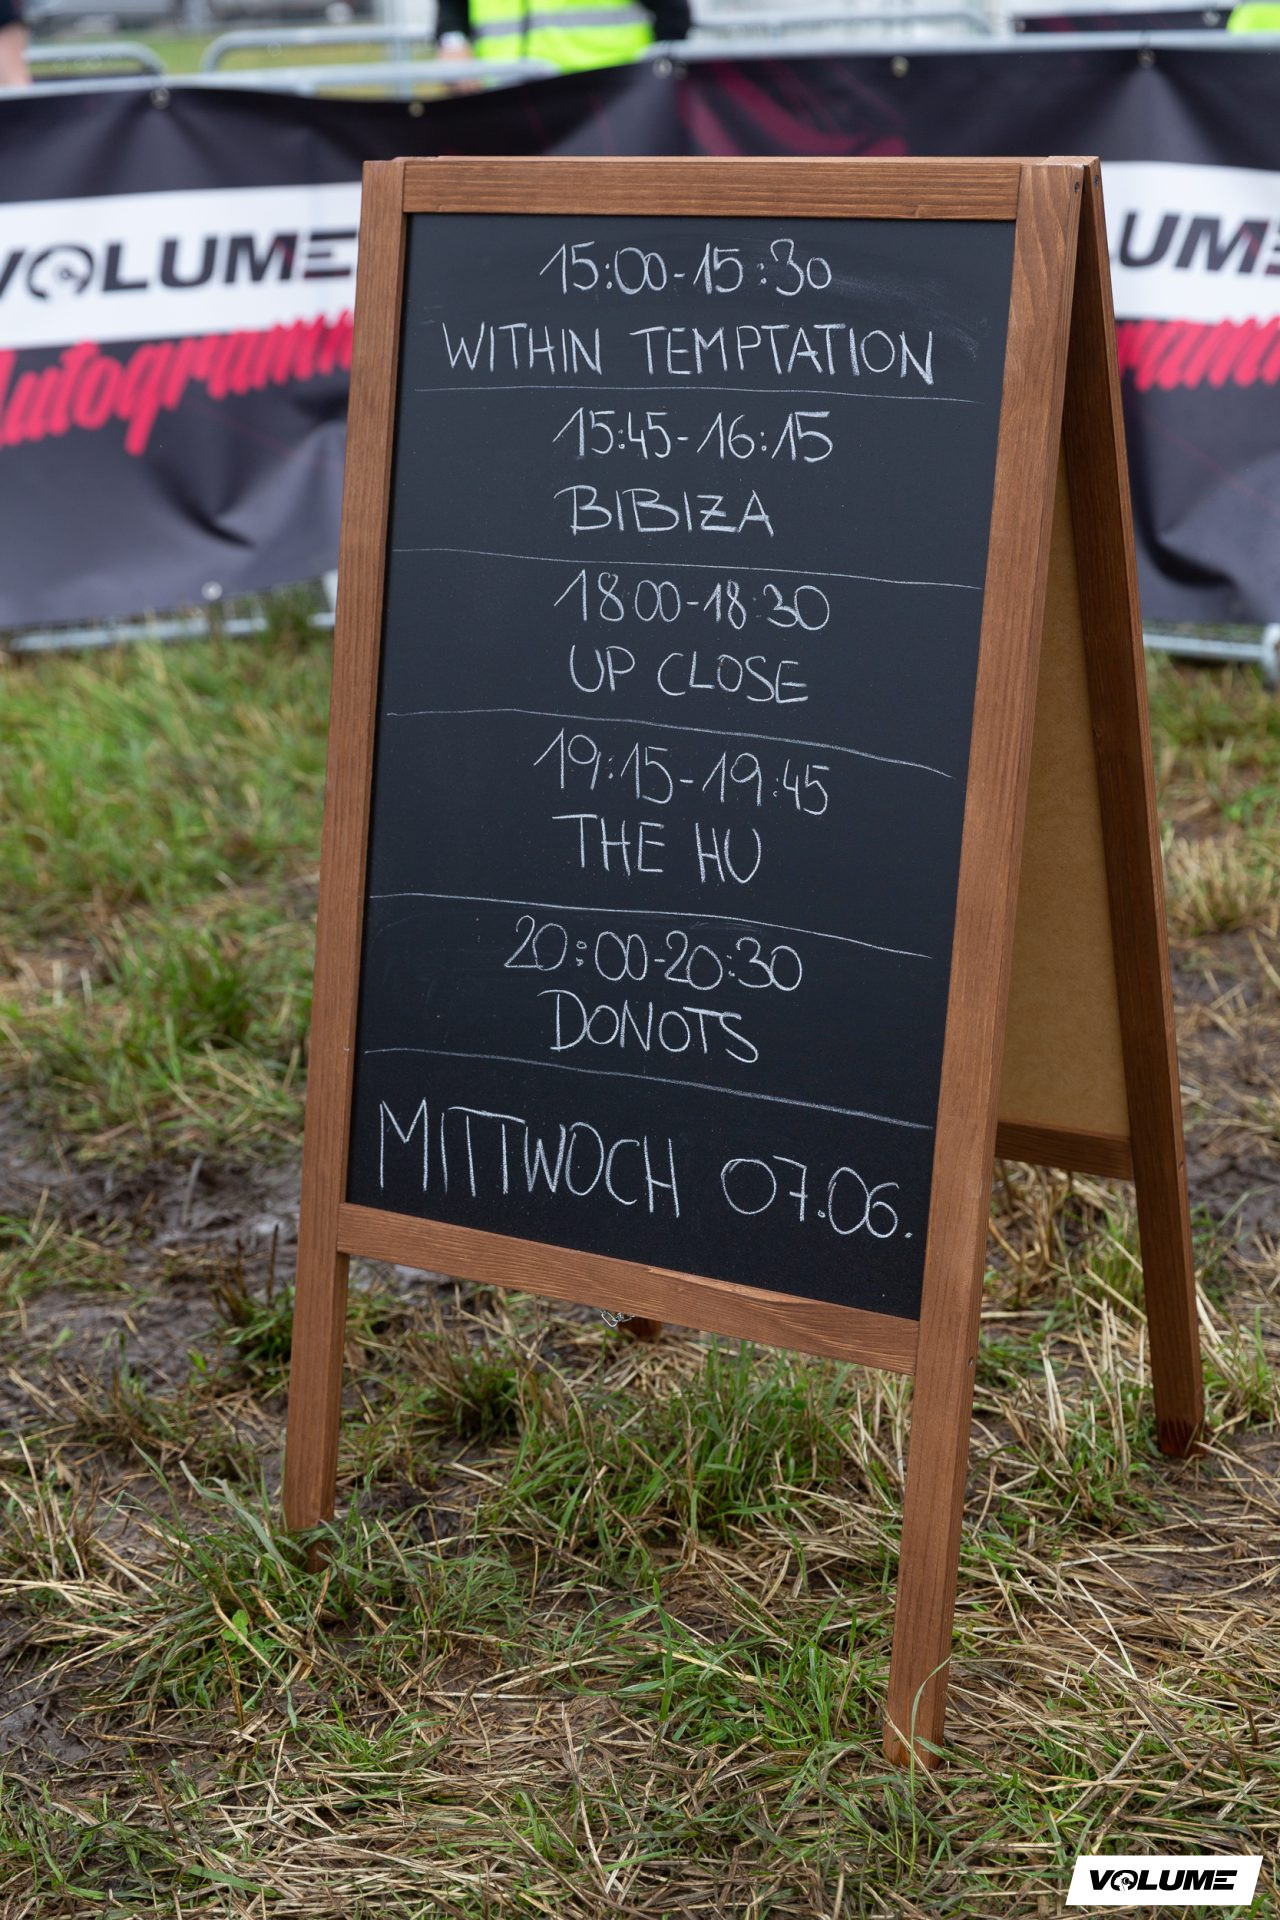 VOLUME
Autogramm
UME
ramm
15:00-15:30
WITHIN TEMPTATION
15:45-16:15
BIBIZA
18:00-18:30
UP CLOSE
19:15-19:45
THE HU
20:00-20:30
DONOTS
MITTWOCH 07.06.
VOLUME